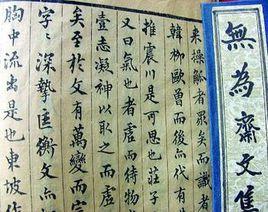 來操觚者眾矣而識者
韓柳歐曾而後代有
推震川是可思也莊子
又曰氣也者虛而待物
壹志凝神以取之而
矣至於文有萬變而宗
字字深摯匡衡文
胸中流出是也東坡作
無為齋文集